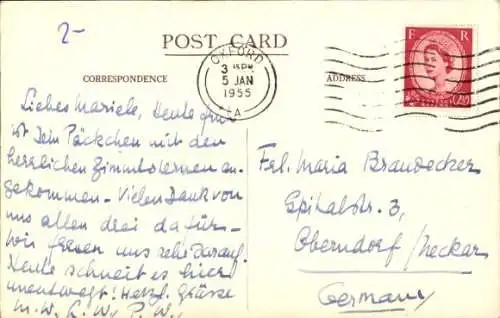 2-
POST CARD
CORRESPONDENCE
ADDRESS
OXFORD
5 JAN
1955
E R
Liebes Mariele, Heute früh
ist Dein Päckchen mit den
herrlichen Zimmtsternen an-
gekommen - Vielen Dank von
uns allen drei dafür -
Wir freuen uns sehr darauf.
Heute schneit es hier
unentwegt! Herzl. Grüsse
M.W. L.W. P.W.
Frl. Maria Brandecker
Spitalstr. 3,
Oberndorf / Neckar
Germany